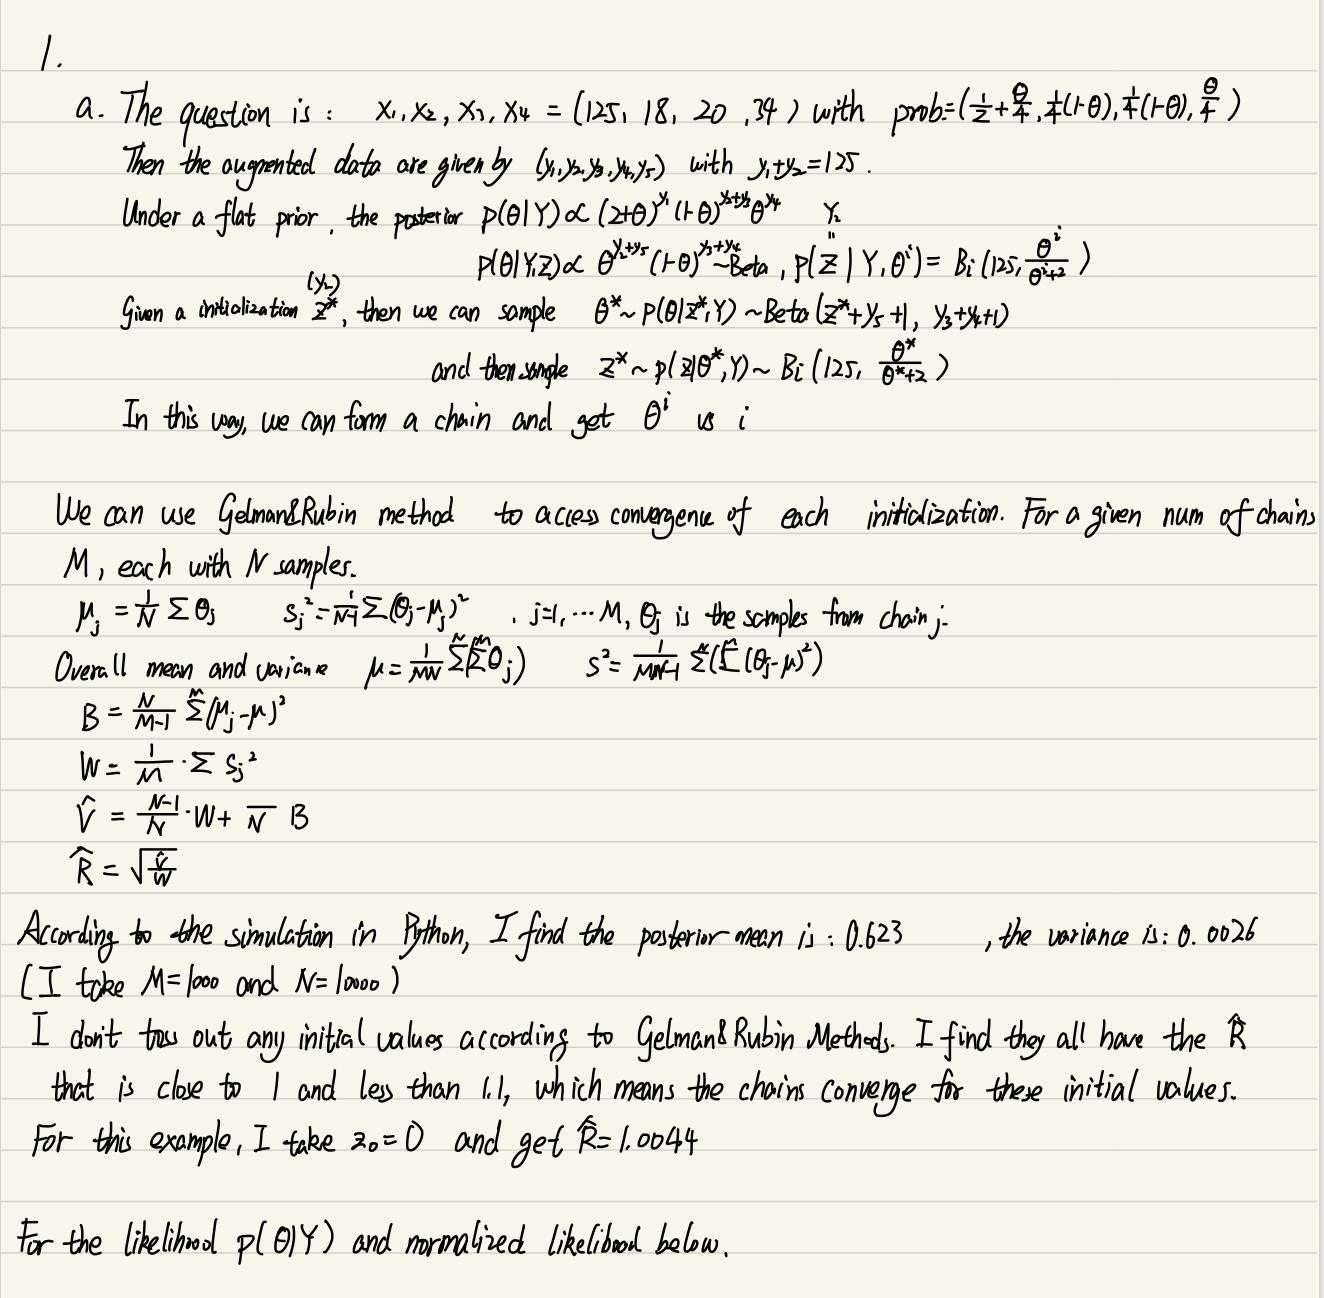 1.
a. The question is : X₁, X₂, X₃, X₄ = (125, 18, 20, 34) with prob=(1/2+θ/4, 1/4(1-θ), 1/4(1-θ), θ/4)
Then the augmented data are given by (y₁,y₂,y₃,y₄,y₅) with y₁+y₂=125.
Under a flat prior, the posterior p(θ|Y)∝(2+θ)^y₁ (1-θ)^y₂+y₃ θ^y₄ Y₂
p(θ|Y,Z)∝ θ^y₂+y₅ (1-θ)^y₃+y₄ ~Beta, p(Z|Y,θⁱ)= Bi(125, θⁱ/θⁱ+2)
(y₂)
Given a initialization z*, then we can sample θ*~p(θ|z*,Y)~Beta(z*+y₅+1, y₃+y₄+1)
and then sample z*~p(z|θ*,Y)~Bi(125, θ*/θ*+2)
In this way, we can form a chain and get θⁱ vs i
We can use Gelman&Rubin method to access convergence of each initialization. For a given num of chains
M, each with N samples.
μⱼ = 1/N Σθⱼ sⱼ²=1/N-1 Σ(θⱼ-μⱼ)² , j=1,…M, θⱼ is the samples from chain j.
Overall mean and variance μ= 1/MN Σ^N(Σ^M θⱼ) s²= 1/MN-1 Σ^N(Σ^M (θⱼ-μ)²)
B = N/M-1 Σ^M(μⱼ-μ)²
W= 1/M · Σ sⱼ²
V̂ = N-1/N · W+ /N B
R̂ = √V̂/W
According to the simulation in Python, I find the posterior mean is : 0.623 , the variance is: 0.0026
(I take M=1000 and N=10000)
I don't tow out any initial values according to Gelman&Rubin Methods. I find they all have the R̂
that is close to 1 and less than 1.1, which means the chains converge for these initial values.
For this example, I take z₀=0 and get R̂=1.0044
For the likelihood p(θ|Y) and normalized likelihood below.